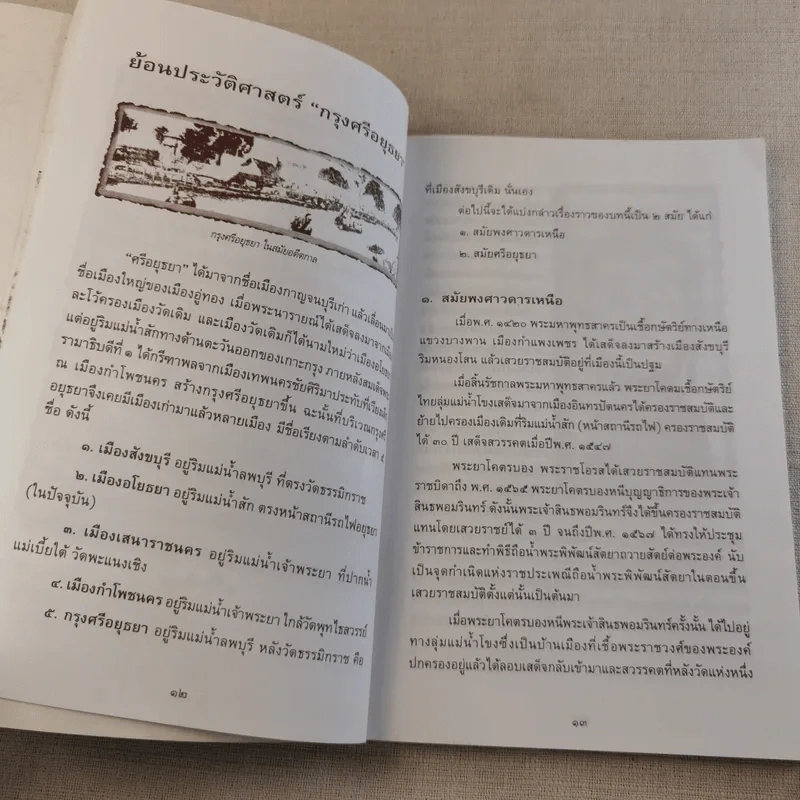 ย้อนประวัติศาสตร์ “กรุงศรีอยุธยา
กรุงศรีอยุธยา ในสมัยอดีตกาล
“ศรีอยุธยา” ได้มาจากชื่อเมืองกาญจนบุรีเก่า แล้วเลื่อนมา
ชื่อเมืองใหญ่ของเมืองอู่ทอง เมื่อพระนารายณ์ได้เสด็จลงมาจาก
ละโว้ครองเมืองวัดเดิม และเมืองวัดเดิมก็ได้นามใหม่ว่าเมืองอโยธยา
แต่อยู่ริมแม่น้ำสักทางด้านตะวันออกของเกาะกรุง ภายหลังสมเด็จพระ
รามาธิบดีที่ ๑ ได้กรีฑาพลจากเมืองเทพนครชัยศิริมาประทับที่เวียงเล็ก
ณ เมืองกำโพชนคร สร้างกรุงศรีอยุธยาขึ้น ฉะนั้นที่บริเวณกรุงศรี
อยุธยาจึงเคยมีเมืองเก่ามาแล้วหลายเมือง มีชื่อเรียงตามลำดับเวลา ๕
ชื่อ ดังนี้
๑. เมืองสังขบุรี อยู่ริมแม่น้ำลพบุรี ที่ตรงวัดธรรมิกราช
๒. เมืองอโยธยา อยู่ริมแม่น้ำสัก ตรงหน้าสถานีรถไฟอยุธยา
(ในปัจจุบัน)
๓. เมืองเสนาราชนคร อยู่ริมแม่น้ำเจ้าพระยา ที่ปากน้ำ
แม่เบี้ยใต้ วัดพะแนงเชิง
๔. เมืองกำโพชนคร อยู่ริมแม่น้ำเจ้าพระยา ใกล้วัดพุทไธสวรรย์
๕. กรุงศรีอยุธยา อยู่ริมแม่น้ำลพบุรี หลังวัดธรรมิกราช คือ
๑๒
ที่เมืองสังขบุรีเดิม นั่นเอง
ต่อไปนี้จะได้แบ่งกล่าวเรื่องราวของบทนี้เป็น ๒ สมัย ได้แก่
๑. สมัยพงศาวดารเหนือ
๒. สมัยศรีอยุธยา
๑. สมัยพงศาวดารเหนือ
เมื่อพ.ศ. ๑๔๒๐ พระมหาพุทธสาครเป็นเชื้อกษัตริย์ทางเหนือ
แขวงบางพาน เมืองกำแพงเพชร ได้เสด็จลงมาสร้างเมืองสังขบุรี
ริมหนองโสน แล้วเสวยราชสมบัติอยู่ที่เมืองนี้เป็นปฐม
เมื่อสิ้นรัชกาลพระมหาพุทธสาครแล้ว พระยาโคตมเชื้อกษัตริย์
ไทยลุ่มแม่น้ำโขงเสด็จมาจากเมืองอินทรปัตนครได้ครองราชสมบัติและ
ย้ายไปครองเมืองเดิมที่ริมแม่น้ำสัก (หน้าสถานีรถไฟ) ครองราชสมบัติ
ได้ ๓๐ ปี เสด็จสวรรคตเมื่อปีพ.ศ. ๑๕๔๗
พระยาโคตรบอง พระราชโอรสได้เสวยราชสมบัติแทนพระ
ราชบิดาถึง พ.ศ. ๑๕๖๕ พระยาโคตรบองหนีบุญญาธิการของพระเจ้า
สินธพอมรินทร์ ดังนั้นพระเจ้าสินธพอมรินทร์จึงได้ขึ้นครองราชสมบัติ
แทนโดยเสวยราชย์ได้ ๓ ปี จนถึงปีพ.ศ. ๑๕๖๗ ได้ทรงให้ประชุม
ข้าราชการและทำพิธีถือน้ำพระพิพัฒน์สัตยาถวายสัตย์ต่อพระองค์ นับ
เป็นจุดกำเนิดแห่งราชประเพณีถือน้ำพระพิพัฒน์สัตยาในตอนขึ้น
เสวยราชสมบัติตั้งแต่นั้นเป็นต้นมา
เมื่อพระยาโคตรบองหนีพระเจ้าสินธพอมรินทร์ครั้งนั้น ได้ไปอยู่
ทางลุ่มแม่น้ำโขงซึ่งเป็นบ้านเมืองที่เชื้อพระราชวงศ์ของพระองค์
ปกครองอยู่แล้วได้ลอบเสด็จกลับเข้ามาและสวรรคตที่หลังวัดแห่งหนึ่ง
๑๓